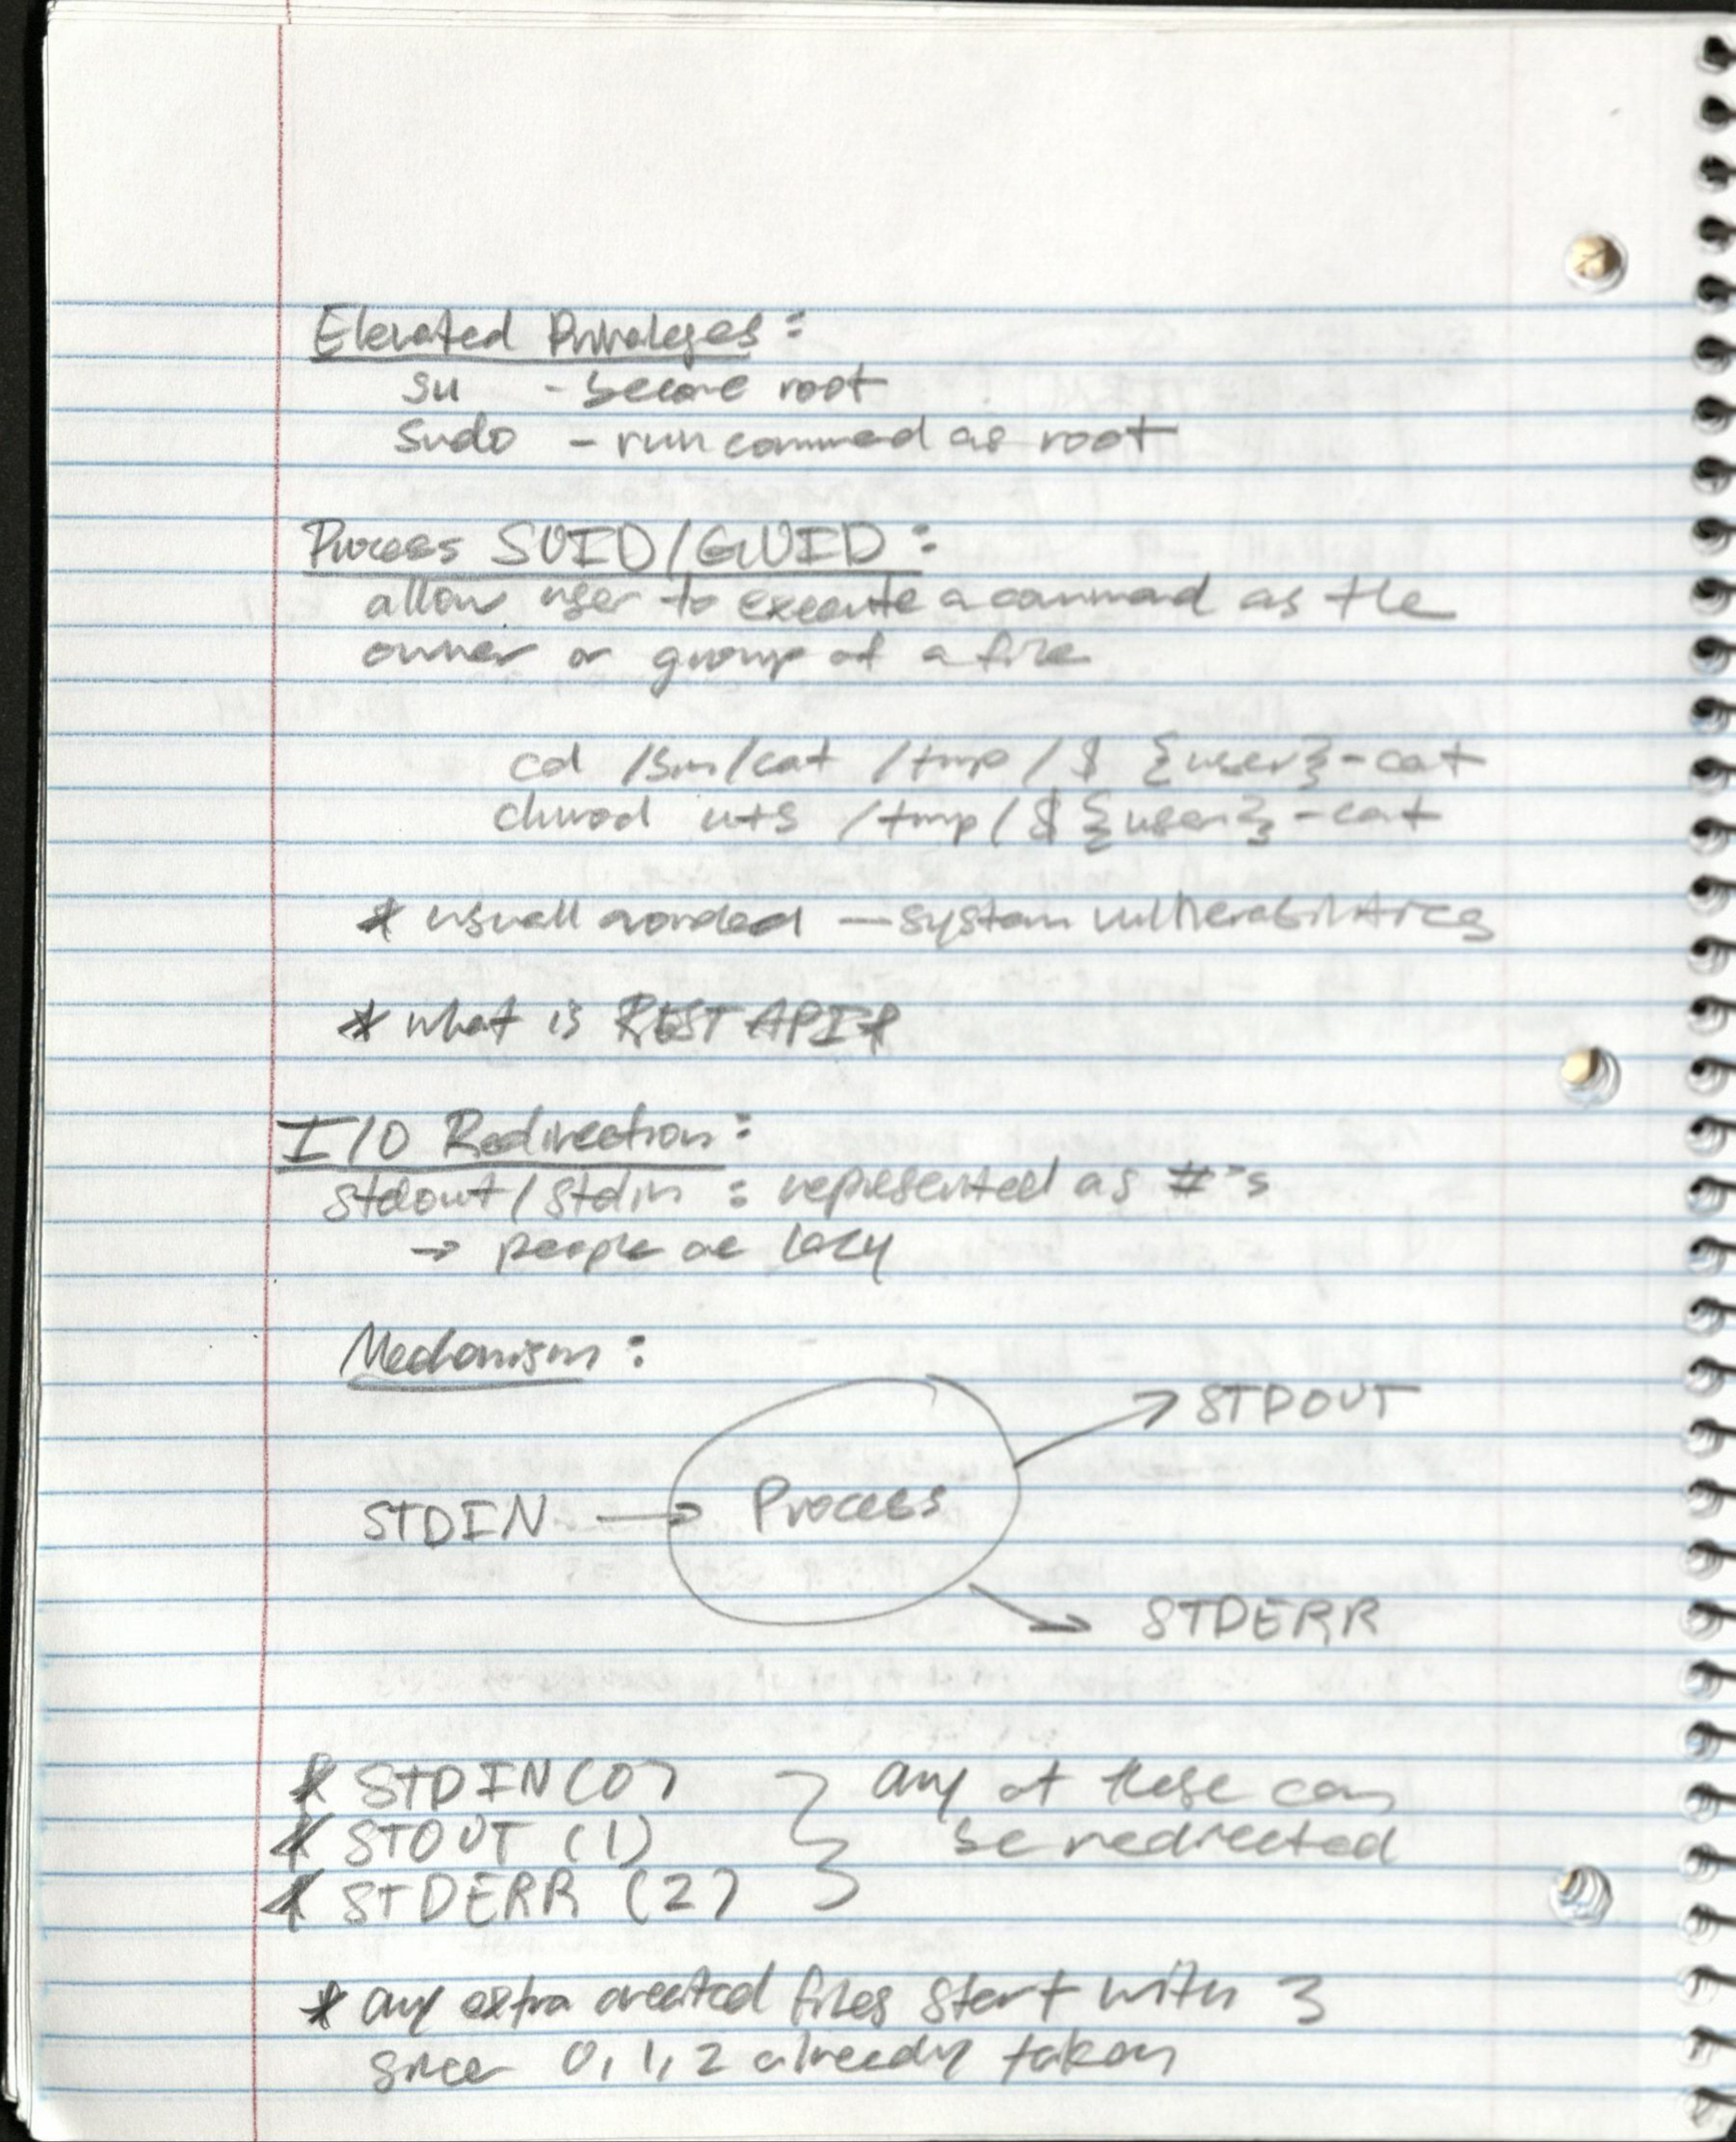 Elevated Privileges:
su - become root
sudo - run command as root
Process SUID/GUID:
allow user to execute a command as the
owner or group of a file
cd /bin/cat /tmp/${user}-cat
chmod u+s /tmp/${user}-cat
* usuall avoided - system vulnerabilities
* what is REST API*
I/O Redirection:
stdout/stdin : represented as #'s
→ people are lazy
Mechanism:
STDOUT
STDIN → Process
STDERR
* STDIN (0) } any of these can
* STOUT (1) be redirected
* STDERR (2)
* any extra created files start with 3
since 0, 1, 2 already taken